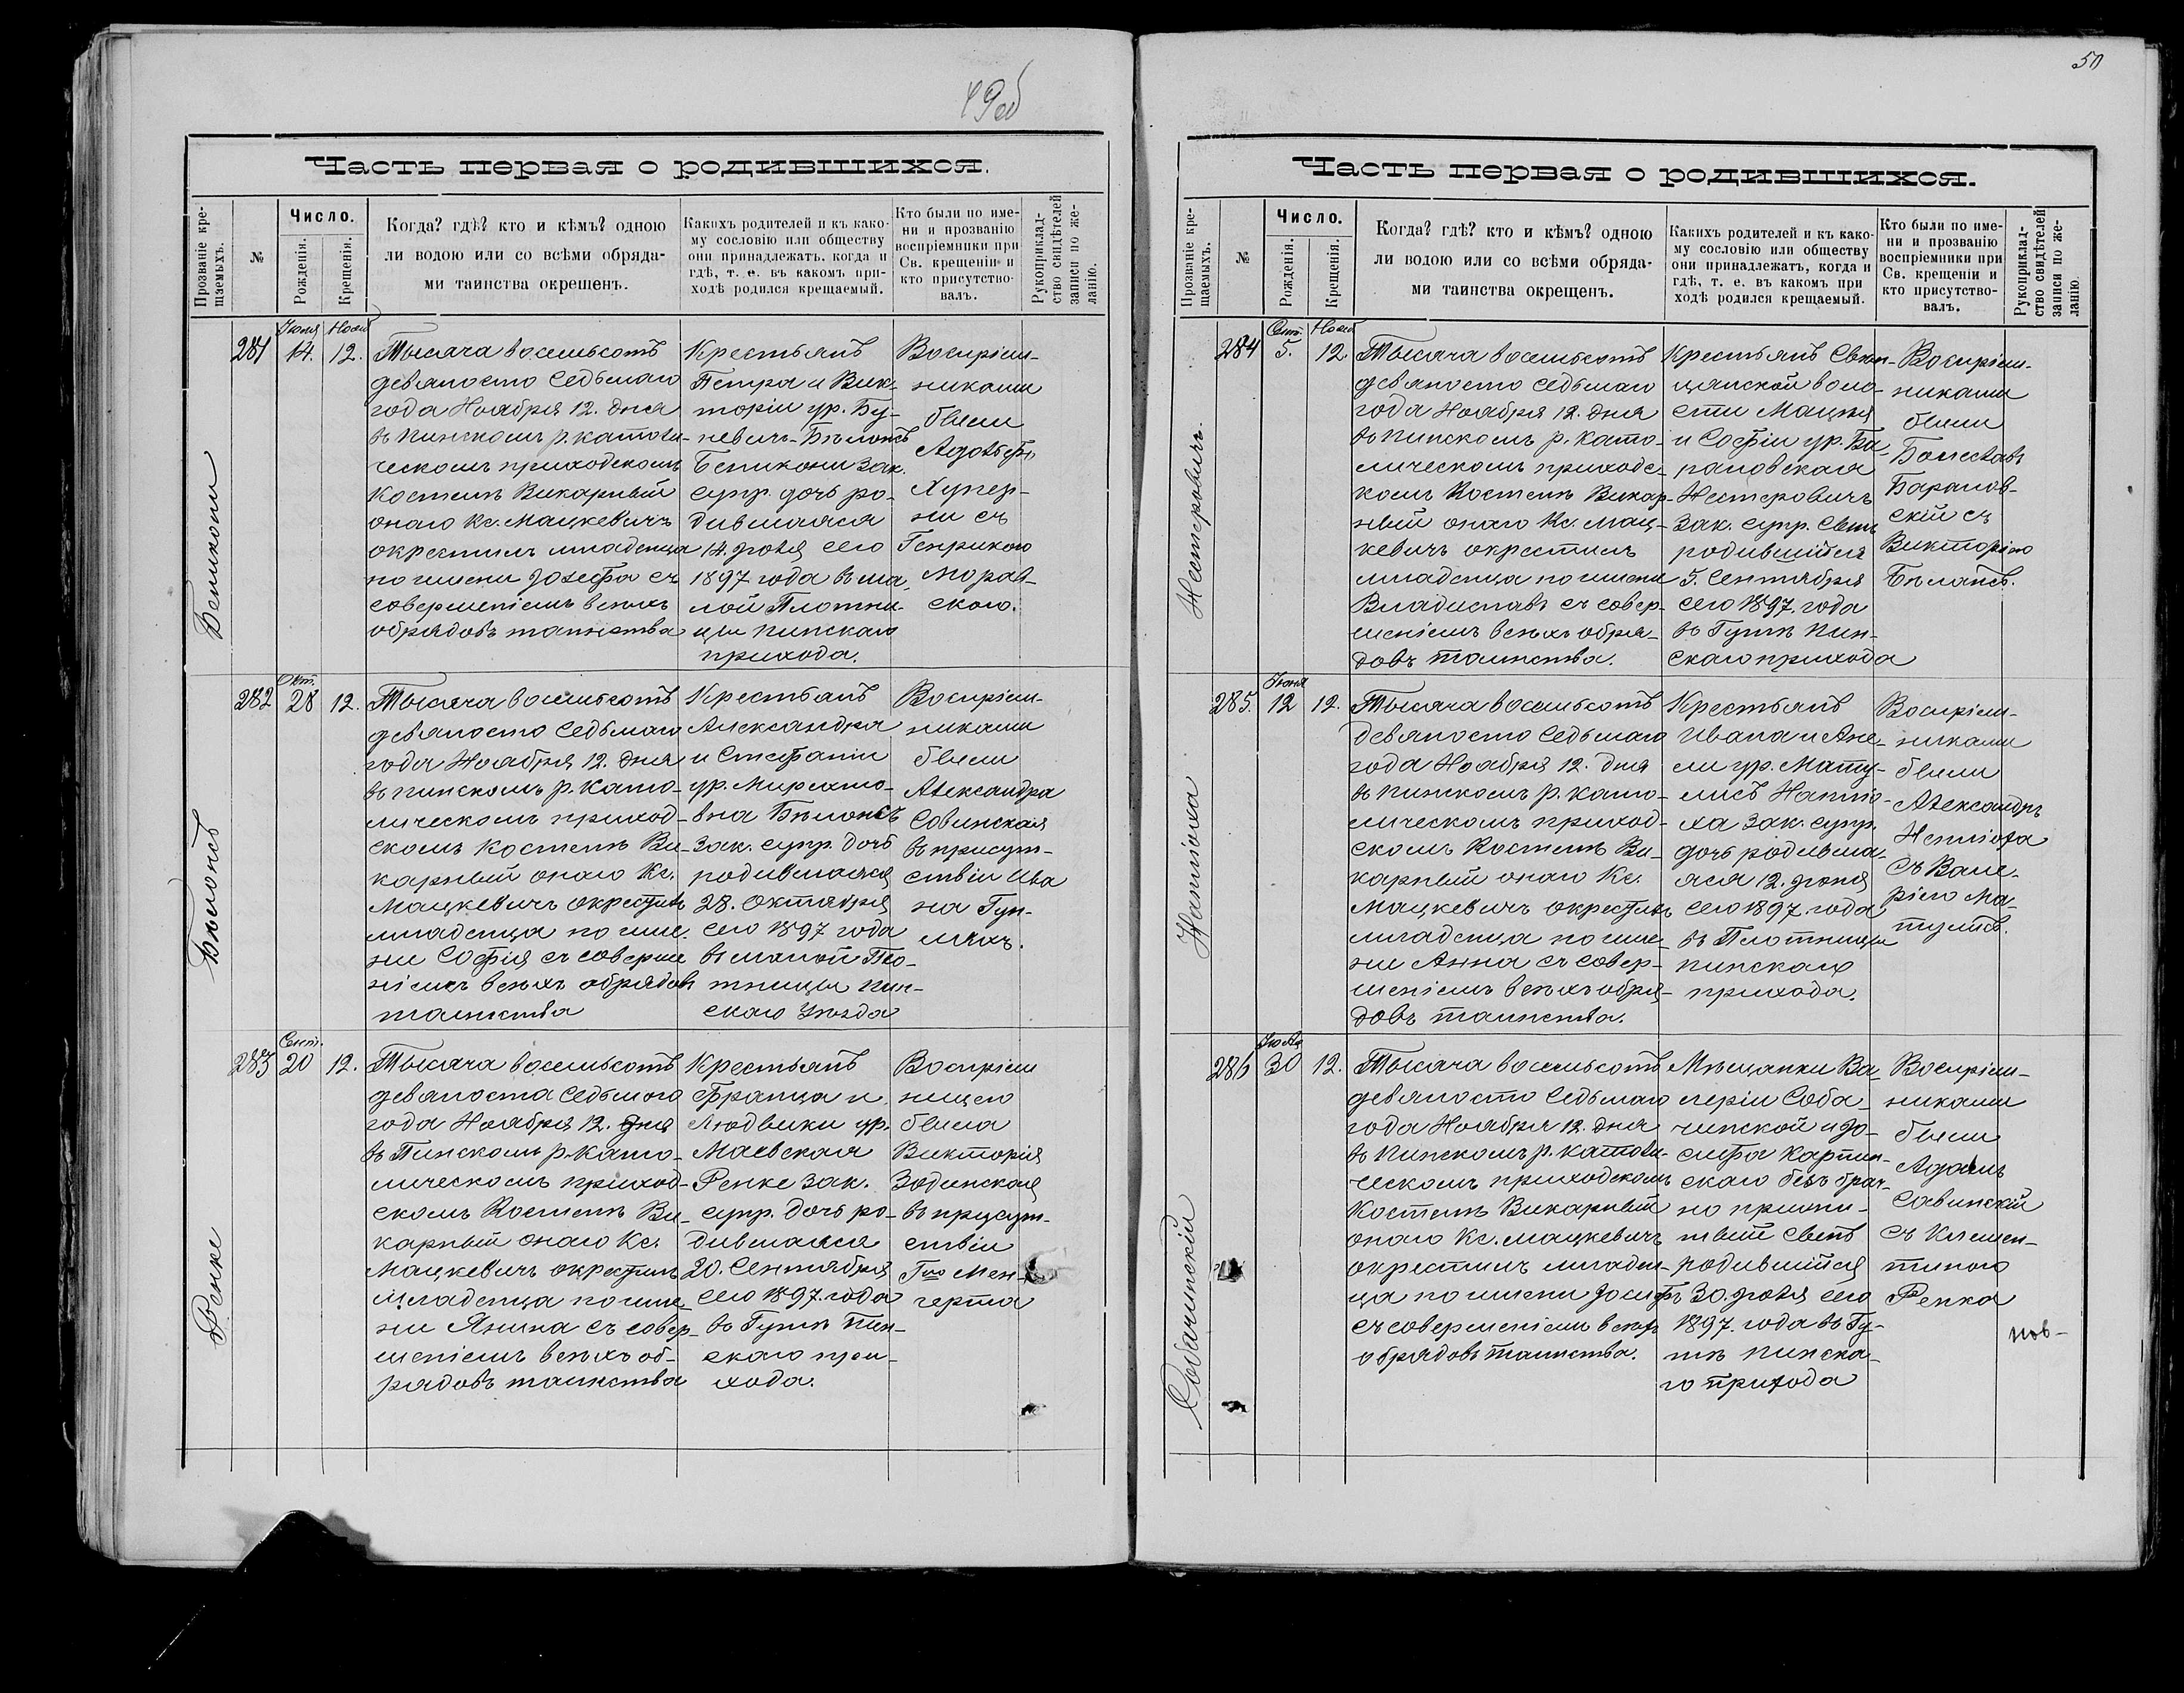 49об
Часть первая о родившихся.
Прозваніе кре-
щаемыхъ.
№
Число.
Рожденія.
Крещенія.
Когда? гдѣ? кто и кѣмъ? одною
ли водою или со всѣми обряда-
ми таинства окрещенъ.
Какихъ родителей и къ како-
му сословію или обществу
они принадлежатъ, когда и
гдѣ, т. е. въ какомъ при-
ходѣ родился крещаемый.
Кто были по име-
ни и прозванію
воспріемники при
Св. крещеніи и
кто присутство-
валъ.
Рукоприклад-
ство свидѣтелей
записи по же-
ланію.
281
Іюля
14.
Нояб
12.
Тысяча восемьсотъ
девяносто седьмаго
года Ноября 12. дня
въ Пинскомъ р. католи-
ческомъ приходскомъ
Костелѣ Викарный
онаго Кс. Мацкевичъ
окрестилъ младенца
по имени Іозефа съ
совершеніемъ всѣхъ
обрядовъ таинства
Крестьянъ
Петра и Вик-
торіи ур. Бу-
невичъ-Бѣлонсъ
зак.
супр. дочь ро-
дившаяся
14. Іюля сего
1897 года въ ма-
лой Плотни-
цы Пинскаго
прихода.
Воспріем-
никами
были
Адольфъ
съ
скою.
Бѣлонсъ
282
Окт.
28
12.
Тысяча восемьсотъ
девяносто седьмаго
года Ноября 12. дня
въ Пинскомъ р. като-
лическомъ приход-
скомъ Костелѣ Ви-
карный онаго Кс.
Мацкевичъ окрестилъ
младенца по име-
ни Софія съ соверше
ніемъ всѣхъ обрядовъ
таинства
Крестьянъ
Александра
и Стефаніи
ур.
вна Бѣлонсъ
зак. супр. дочь
родившаяся
28. Октября
сего 1897 года
въ малой Пло-
тницы Пин-
скаго уѣзда
Воспріем-
никами
были
Александра
Совинская
въ присут-
ствіи Ива
на
Ренке
283
Сент.
20
12.
Тысяча восемьсотъ
девяноста седьмого
года Ноября 12. дня
въ Пинскомъ р. като-
лическомъ приход-
скомъ Костелѣ Ви-
карный онаго Кс.
Мацкевичъ окрестилъ
младенца по име-
ни Янина съ совер-
шеніемъ всѣхъ об-
рядовъ таинства
Крестьянъ
Франца и
Людвики ур.
Маевская
Ренке зак.
супр. дочь ро-
дившаяся
20. Сентября
сего 1897. года
въ Гутѣ Пин-
скаго при-
хода.
Воспріем
ницею
была
Викторія
въ присут-
ствіи
50
Часть первая о родившихся.
Прозваніе кре-
щаемыхъ.
№
Число.
Рожденія.
Крещенія.
Когда? гдѣ? кто и кѣмъ? одною
ли водою или со всѣми обряда-
ми таинства окрещенъ.
Какихъ родителей и къ како-
му сословію или обществу
они принадлежатъ, когда и
гдѣ, т. е. въ какомъ при
ходѣ родился крещаемый.
Кто были по име-
ни и прозванію
воспріемники при
Св. крещеніи и
кто присутство-
валъ.
Рукоприклад-
ство свидѣтелей
записи по же-
ланію.
Нестеровичъ.
284
Сент.
5.
Нояб
12
Тысяча восемьсотъ
девяносто седьмаго
года Ноября 12. дня
въ Пинскомъ р. като-
лическомъ приходс-
комъ Костелѣ Викар-
ный онаго Кс. Мац-
кевичъ окрестилъ
младенца по имени
Владиславъ съ совер-
шеніемъ всѣхъ обря-
довъ таинства.
Крестьянъ
цянской воло-
сти
и Софіи ур. Ба-
рановская
Нестеровичъ
зак. супр. сынъ
родившійся
5. Сентября
сего 1897. года
въ Гутѣ Пин-
скаго прихода
Воспріем-
никами
были
Болеславъ
Баранов-
скій съ
Викторіею
285.
Іюня
12
12.
Тысяча восемьсотъ
девяносто седьмаго
года Ноября 12. дня
въ Пинскомъ р. като-
лическомъ приход-
скомъ Костелѣ Ви-
карный онаго Кс.
Мацкевичъ окрестилъ
младенца по име-
ни Анна съ совер-
шеніемъ всѣхъ обря-
довъ таинства.
Крестьянъ
Ивана и Ане-
ли ур. Мату-
лисъ
ха зак. супр.
дочь родивша-
яся 12. Іюня
сего 1897. года
въ Плотницы
Пинскаго
прихода.
Воспріем-
никами
были
Александръ
съ Вале-
ріею Ма-
тулисъ.
Собачинскій
286
Іюля
30
12.
Тысяча восемьсотъ
девяносто седьмаго
года Ноября 12. дня
въ Пинскомъ р. католи-
ческомъ приходскомъ
Костелѣ Викарный
онаго Кс. Мацкевичъ
окрестилъ младен-
ца по имени Іосифъ
съ совершеніемъ всѣхъ
обрядовъ таинства.
Мѣщанки Ва-
леріи Соба-
чинской и Іо-
сифа Карпин-
скаго безъ брач-
но прижи-
тый сынъ
родившійся
30. Іюля сего
1897. года въ Гу-
тѣ Пинска-
го прихода
Воспріем-
никами
были
Адамъ
Савинскій
съ Клемен-
тиною
Ренка